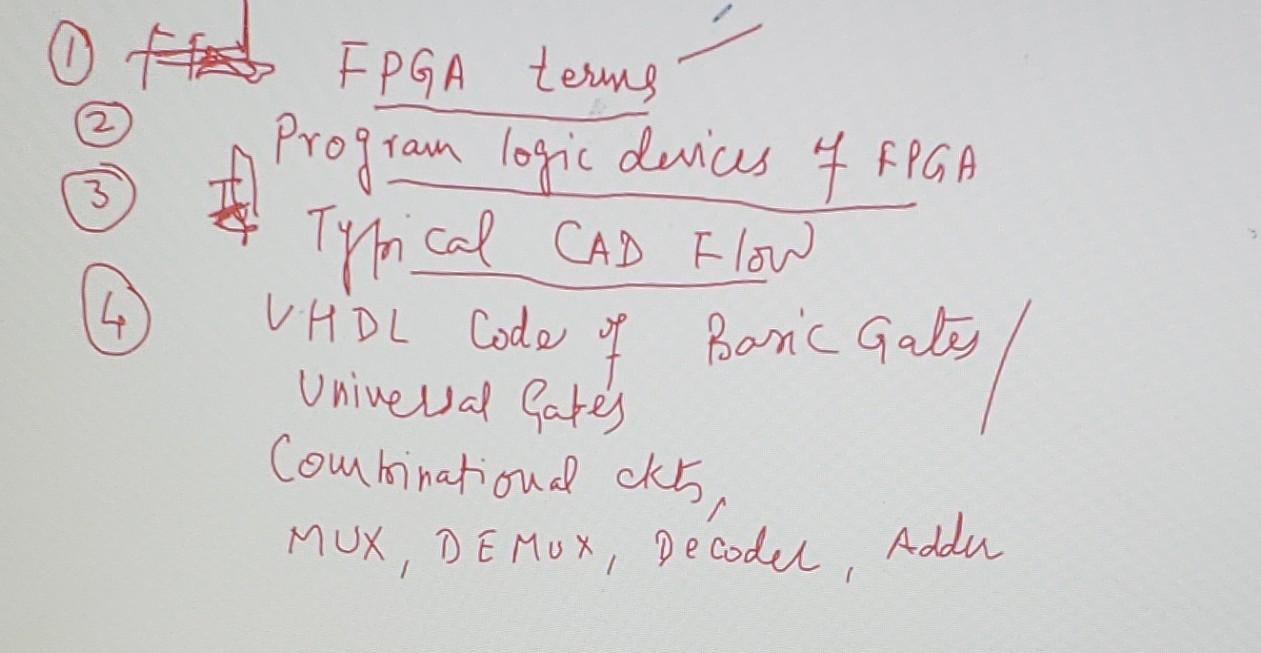 ① FPGA terms
② Program logic devices of FPGA
③ Typical CAD Flow
④ VHDL Code of Basic Gates /
Universal Gates
Combinational ckts,
MUX, DEMUX, Decoder, Adder